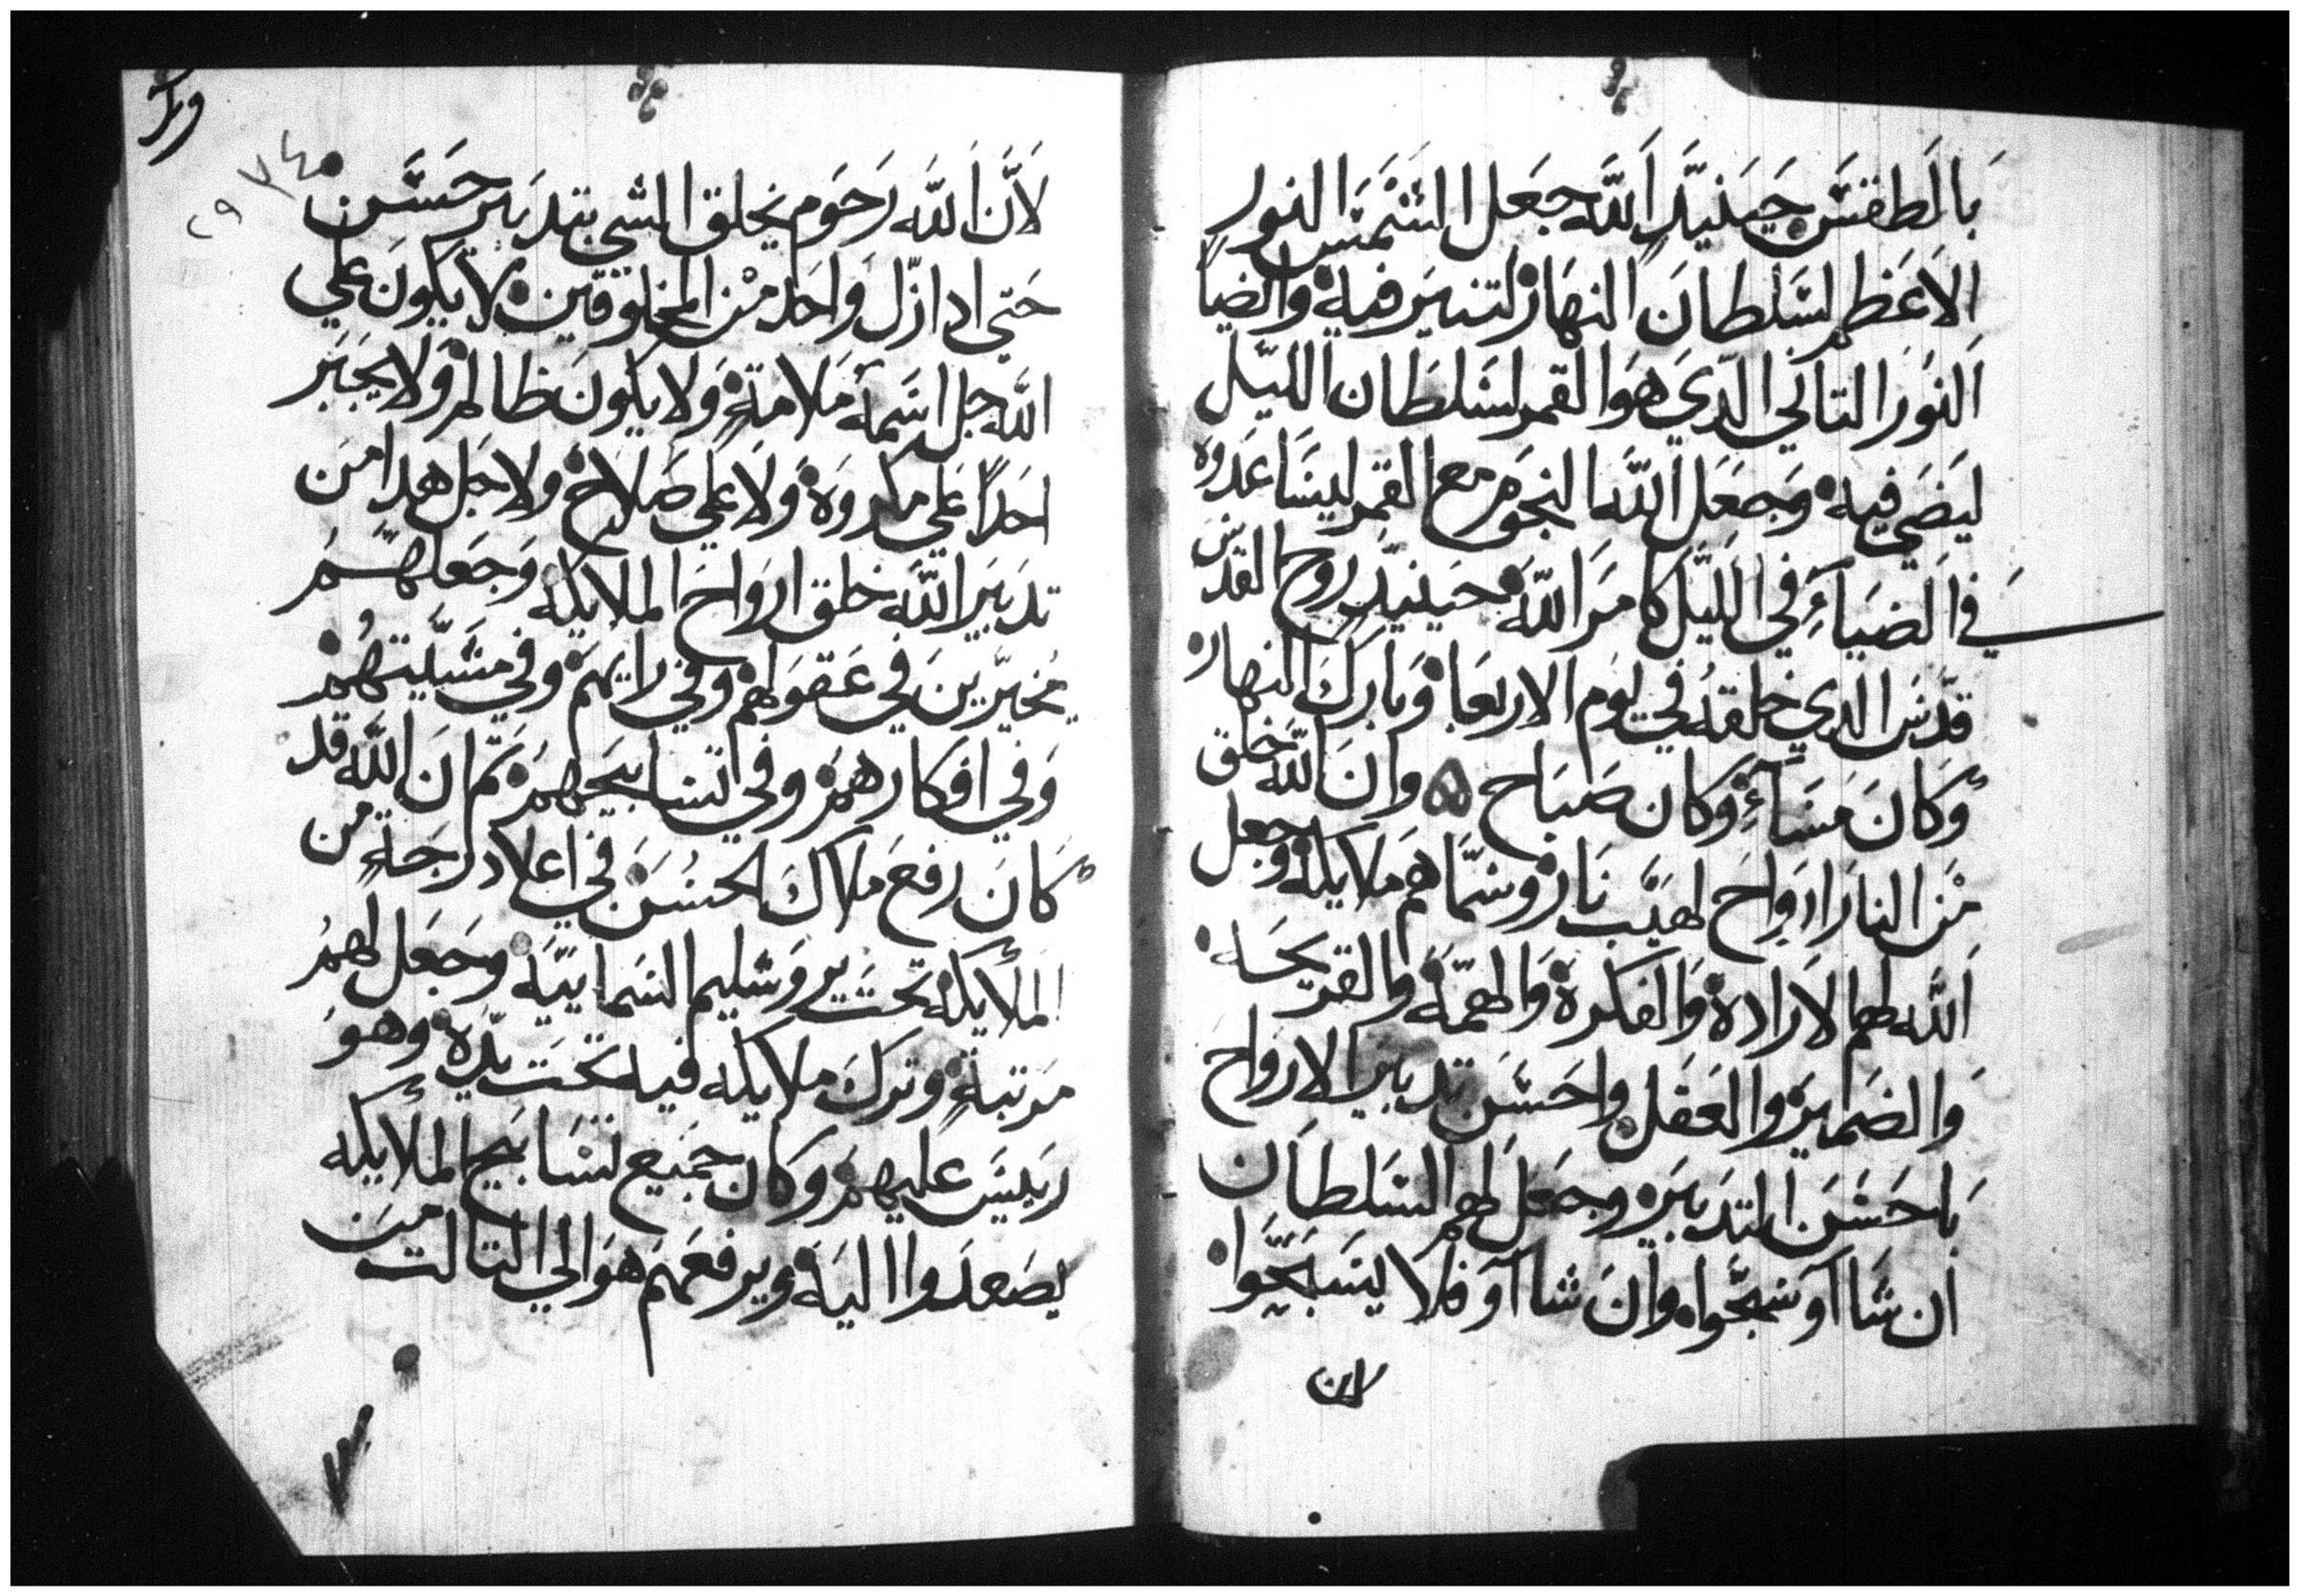 بالطقس حينيذ الله جعل الشمس النور
الاعظم لسلطان النهار لتنير فيه والضيا
النور التاني الذي هو القمر لسلطان الليل
ليضي فيه وجعل الله النجوم مع القمر ليساعدوه
في الضياء في الليل كامر الله حينيذ روح القدس
قدس الدي خلقه في يوم الاربعا وبارك النهار
وكان مساء وكان صباح ۞ وان الله خلق
من النار ارواح لهيب نار وسماهم ملايكه وجعل
الله لهم الارادة والفكرة والهمة والقريحه
والضماير والعقل واحسن تدبير الارواح
باحسن التدبير وجعل لهم السلطان
ان شااو سبحوا وان شااو فلا يسبحوا
لان
لان الله رحوم يخلق الشي بتدبير حسن
حتي ادا زل واحد من المخلوقين لا يكون علي
الله جل اسمه ملامة ولا يكون ظالم ولا يجبر
احدا علي مكروة ولا علي صلاح ولاجل هدا من
تدبير الله خلق ارواح الملايكه وجعلهم
مخيرين في عقولهم وفي رايهم وفي مشيتهم
وفي افكارهم وفي تسابيحهم تم ان الله قد
كان رفع ملاك الحسن في اعلا درجة من
الملايكه تحت يروشليم السماييه وجعل لهم
مرتبة وترك ملايكه فيه تحت يده وهو
رييس عليهم وكان جميع تسابيح الملايكه
يصعدوا اليه ويرفعهم هو الي التالت من